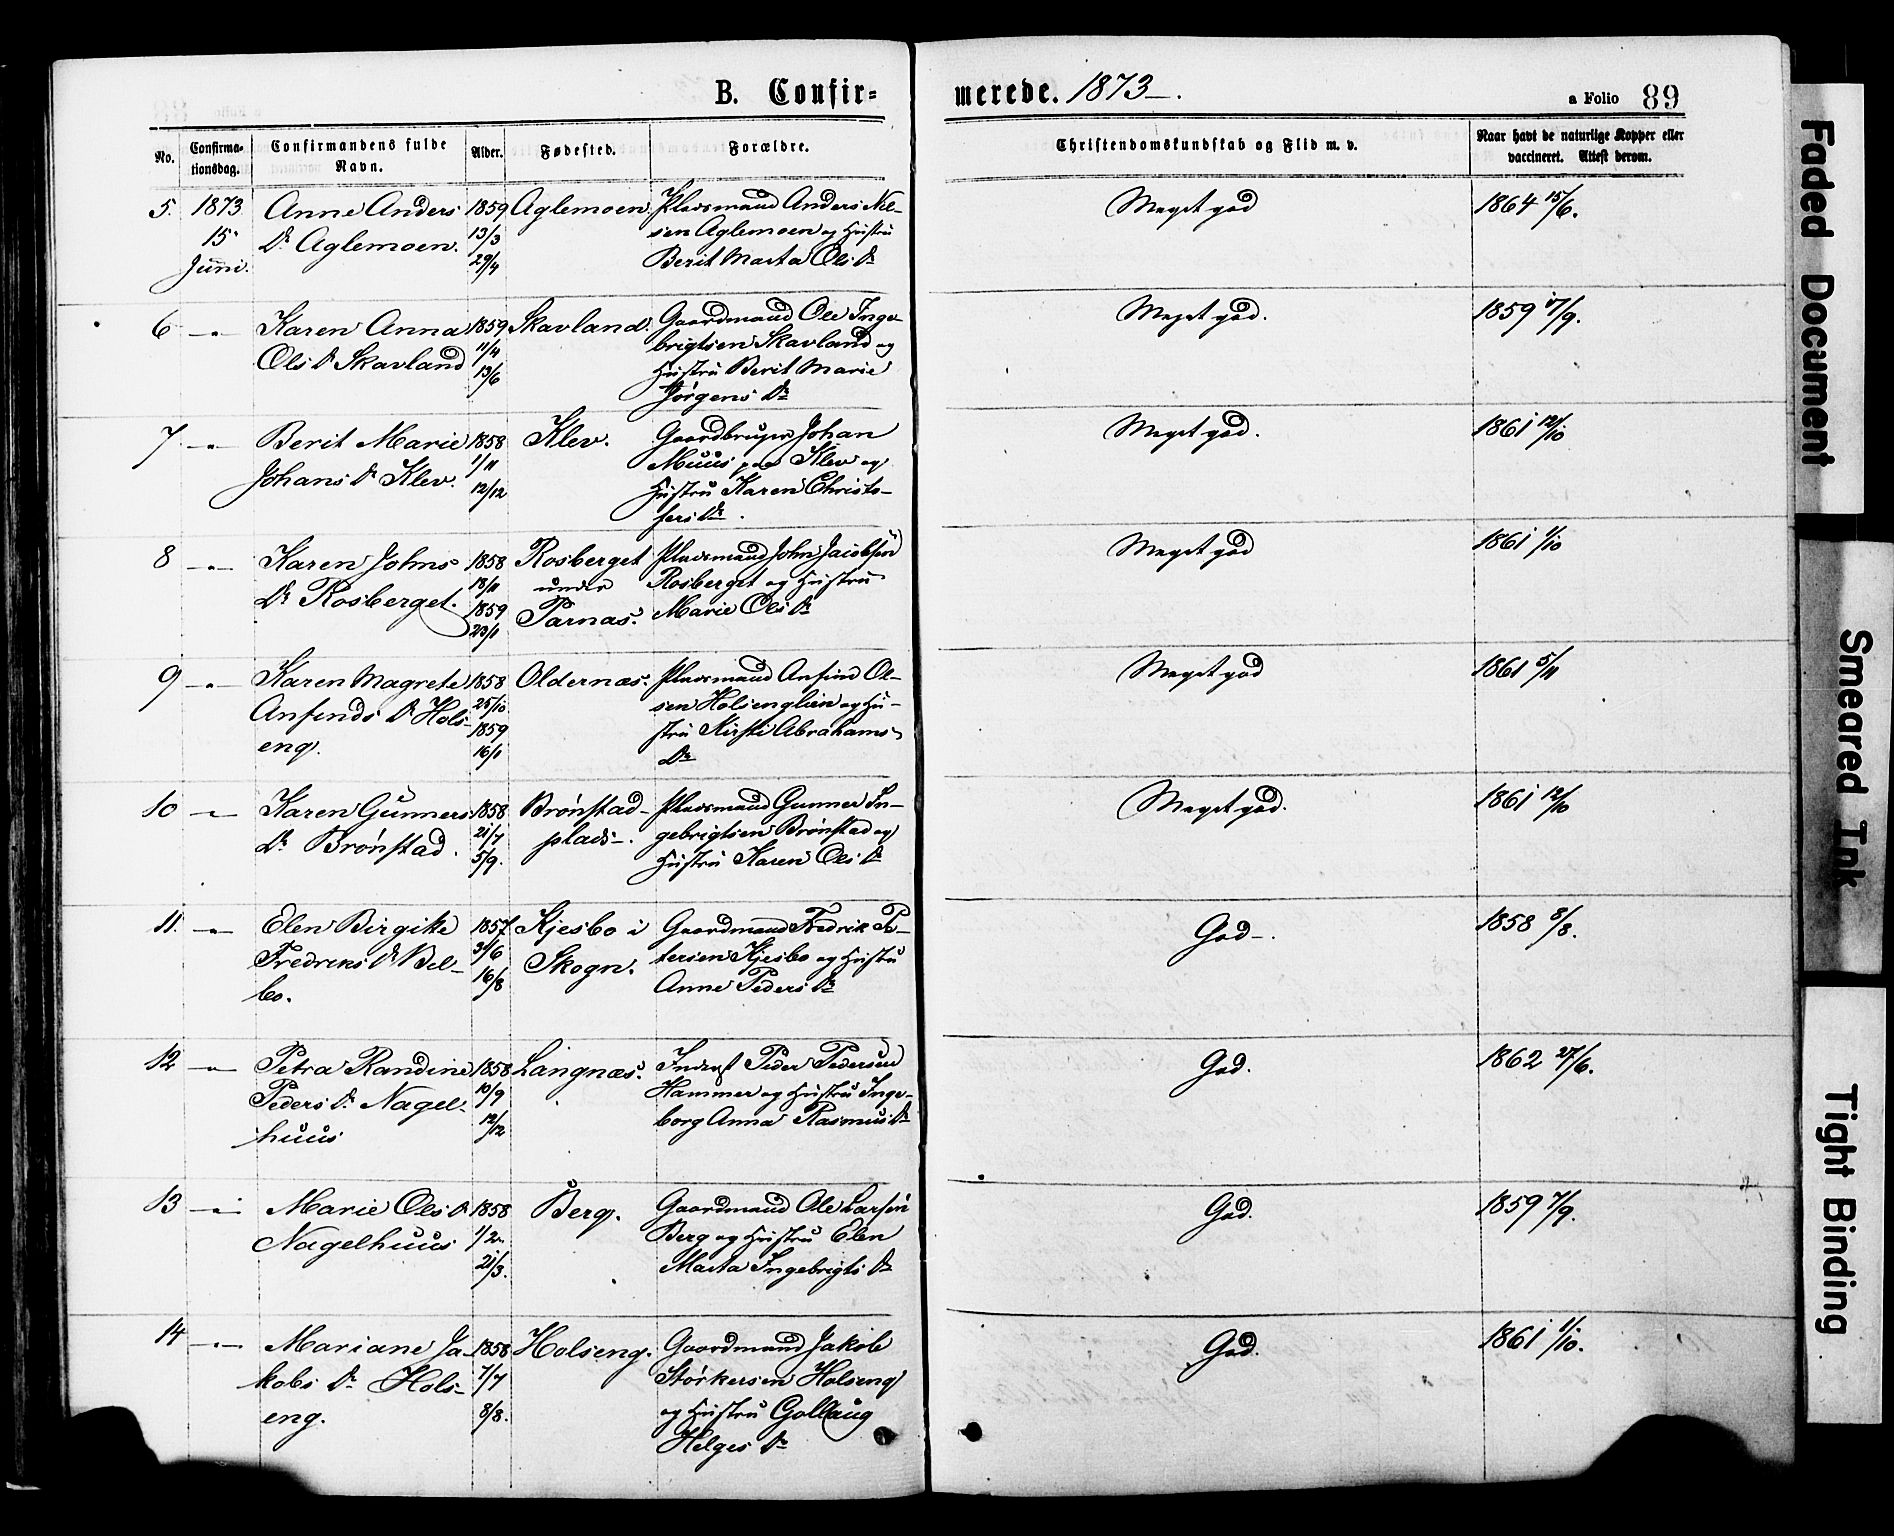 B. Confir=
merede. 1873-.
a Folio 89
No.
Confirma-
tionsdag.
Confirmandens fulde
Navn.
Alder.
Fødested.
Forældre.
Christendomskundskab og Flid m. v.
Naar havt de naturlige Kopper eller
vaccineret. Attest derom.
5. 1873 Anne Anders 1859 Aglemoen. Pladsmand Anders Nil- Meget god 1864 15/6.
15 Dr Aglemoen. 13/3 sen Aglemoen og Hustru
Juni. 29/4 Berit Marta Ols Dr
6 -"- Karen Anna 1859 Skavland. Gaardmand Ole Inge- Meget god. 1859 17/9.
Ols Dr Skavland 11/4 brigtsen Skavland og
13/6 Hustru Berit Marie
Jørgens Dr
7. -"- Berit Marie 1858 Klev. Gaardbruger Johan Meget god. 1861 12/10
Johans Dr Klev. 1/11 Muus paa Klev og
12/12 Hustru Karen Christo-
fers Dr.
8 -"- Karen Johns 1858 Rosberget Pladsmand John Jacobsen Meget god 1861 1/10
Dr Rosberget. 18/11 under Rosberget og Hustru
1859 Parnas. Marie Ols Dr
23/1
9 -"- Karen Magrete 1858 Oldernæs. Pladsmand Anfind Ol- Meget god 1861 5/11
Anfinds Dr Hols- 25/10 sen Holsenglien og Hu-
eng. 1859 stru Kirsti Abrahams
16/1 Dr
10 -"- Karen Gunners 1858 Brønstad- Pladsmand Gunner In- Meget god. 1861 12/10
Dr Brønstad. 21/7 plads-. gebrigtsen Brønstad og
5/9. Hustru Karen Ols Dr
11. -"- Elen Birgitte 1857 Kjesbo i Gaardmand Fredrik Pe- God-. 1858 8/8.
Fredriks Dr Bel- 3/6 Skogn. tersen Kjesbo og Hustru
bo. 16/8 Anne Peders Dr
12 -"- Petra Randine 1858 Langnæs. Inderst Peder Pedersen God. 1862 27/6.
Peders Dr Nagel- 19/9 Hammer og Hustru Inge-
huus 12/12 borg Anna Rasmus Dr
13 -"- Marie Ols Dr 1858 Berg. Gaardmand Ole Larsen God. 1859 7/9.
Nagelhuus 1/2 Berg og Hustru Elen
21/3. Marta Ingebrigts Dr
14 -"- Mariane Ja- 1858 Holseng. Gaardmand Jakob God. 1861 1/10.
kobs Dr Hols- 7/7 Størkersen Holseng
eng. 8/8. og Hustru Gollaug
Helges Dr
Faded Document
Smeared Ink
Tight Binding